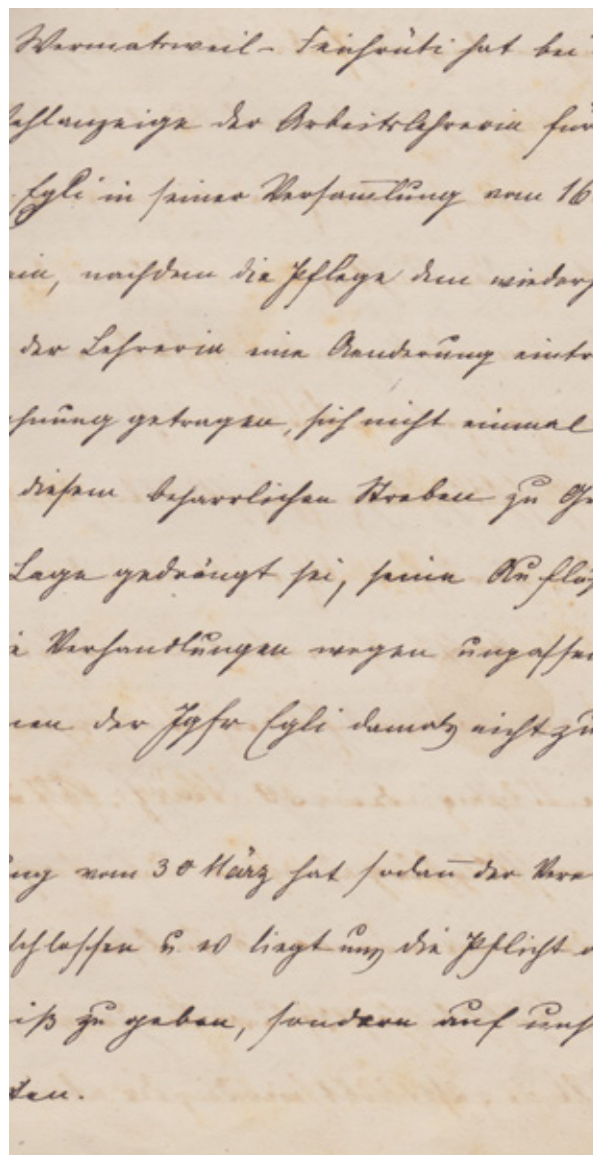 Wermatsweil - Feichrüti hat bei
Wahlanzeige der Arbeitslehrerin für
Egli in seiner Versam̅lung vom 16
ein, nachdem die Pflege dem wieder
der Lehrerin eine Aenderung eintr
hnung getragen, sich nicht einmal
diesem beharrlichen Streben zu Ge
Lage gedrängt sei, seine Auflös
e Verhandlungen wegen unpassen
nen der Jgfr Egli damals nicht zu
ng vom 30 März hat sodan̅ der Vere
schlossen u. es liegt uns die Pflicht o
iß zu geben, sondern auf uns
ten.